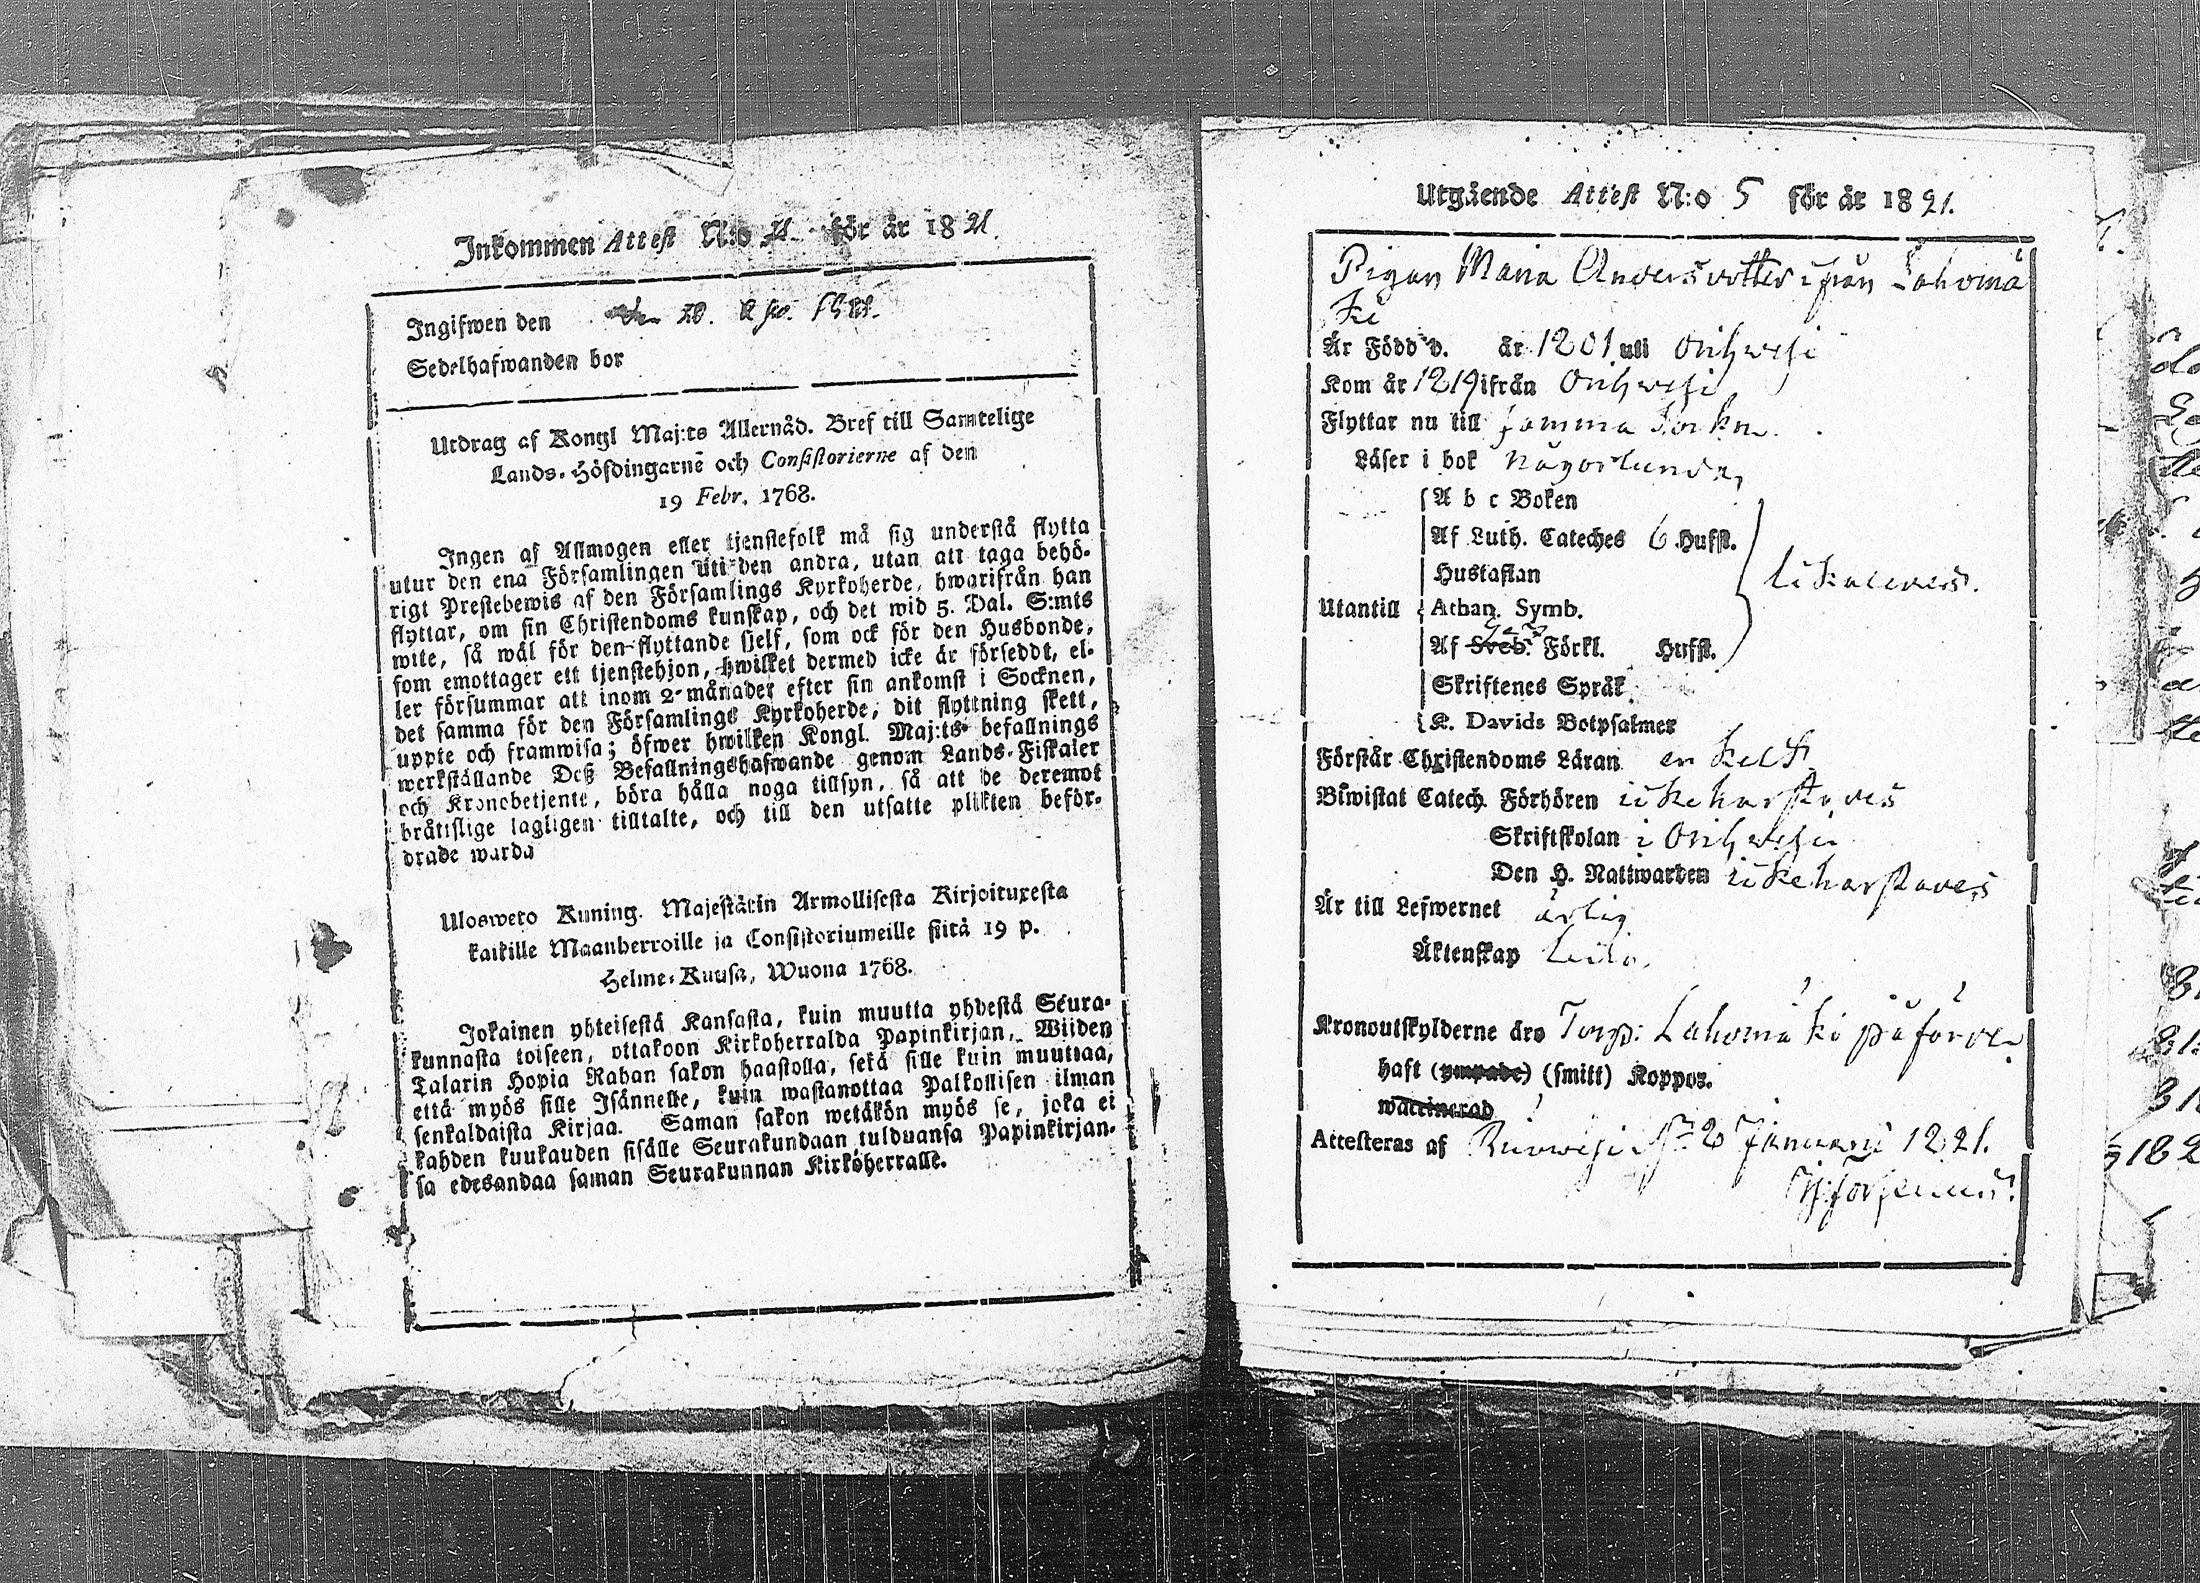 Inkommen Attest N:o för år 1821.
Ingifwen den 1821.
Sedelhafwanden bor
Utdrag af Kongl Maj:ts Allernåd. Bref till Samtelige
Lands-Höfdingarne och Consistorierne af den
19 Febr. 1768.
Ingen af Allmogen eller tjenstefolk må sig understå flytta
utur den ena Församlingen uti den andra, utan att taga behö-
rigt Prestebewis af den Församlings Kyrkoherde, hwarifrån han
flyttar, om sin Christendoms kunskap, och det wid 5. Dal. S:mts
wite, så wäl för den flyttande sjelf, som ock för den Husbonde,
som emottager ett tjenstehjon, hwilket dermed icke är försedt, el-
ler försummar att inom 2 månader efter sin ankomst i Socknen,
det samma för den Församlings Kyrkoherde, dit flyttning skett,
uppte och framwisa; öfwer hwilken Kongl. Maj:ts befallnings
werkställande Deß Befallningshafwande genom Lands-Fiskaler
och Kronobetjente, böra hålla noga tillsyn, så att de deremot
bråttslige lagligen tilltalte, och till den utsatte plikten beför-
drade warda
Ulosweto Kuning. Majestätin Armollisesta Kirjoituxesta
kaikille Maanherroille ja Consistoriumeille siitä 19 p.
Helme-Kuusa, Wuona 1768.
Jokainen yhteisestä Kansasta, kuin muutta yhdestä Seura-
kunnasta toiseen, ottakoon Kirkoherralda Papinkirjan, Wiiden
Talarin Hopia Rahan sakon haastolla, sekä sille kuin muuttaa,
että myös sille Isännelle, kuin wastanottaa Palkollisen ilman
senkaldaista Kirjaa. Saman sakon wetäkön myös se, joka ei
kahden kuukauden sisälle Seurakundaan tulduansa Papinkirjan-
sa edesandaa saman Seurakunnan Kirkoherralle.
Utgående Attest N:o 5 för år 1821.
Pigan Maria Andersdotter ifrån Lahomä
ki
Är Född d. år 1801 uti Orihwesi
Kom år 1819 ifrån Orihwesi
Flyttar nu till samma Sockn.
Läser i bok någorlunda,
A b c Boken
Af Luth. Cateches 6 Hufst.
Hustaflan
Utantill Athan. Symb.
Af Sveb. Förkl. Hufst.
Skriftenes Språk
K. Davids Botpsalmer
Förstår Christendoms Läran enkelt
Biwistat Catech. Förhören icke härstädes
Skriftskolan i Orihwesi
Den H. Nattwarden icke härstädes
Är till Lefwernet ärlig
Äktenskap
Kronoutskylderne äro Torp: Lahomäki påförde
haft (ympade) (smitt) Koppor.
waccinerad
Attesteras af Januarii 1821.